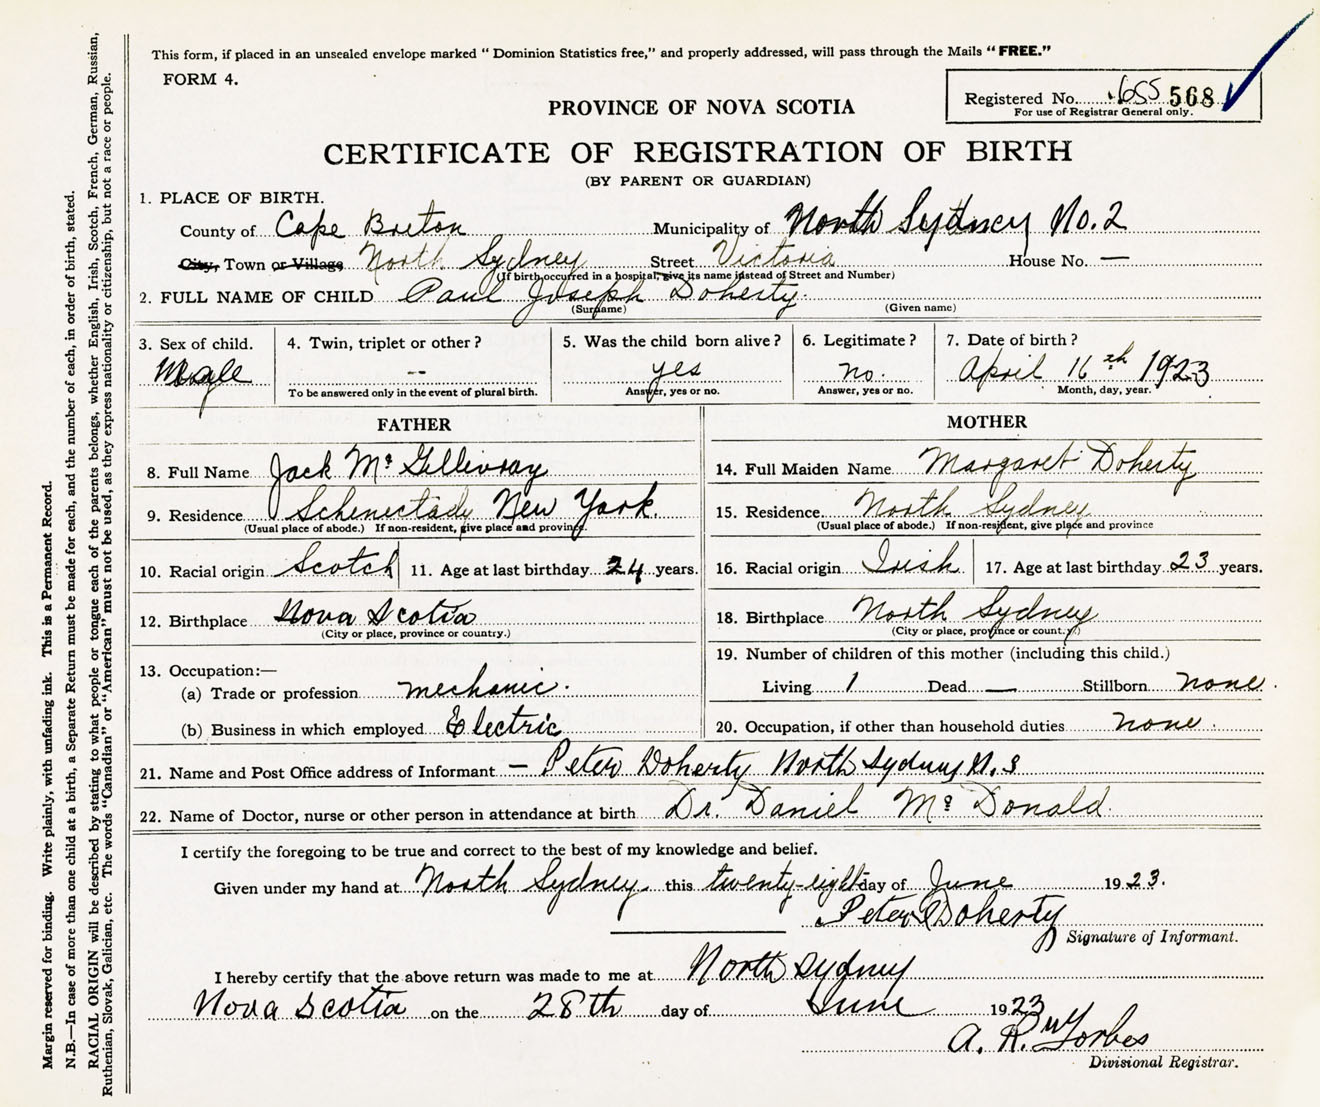 This form, if placed in an unsealed envelope marked "Dominion Statistics free," and properly addressed, will pass through the Mails "FREE."
FORM 4.
Registered No. 568
For use of Registrar General only.
PROVINCE OF NOVA SCOTIA
CERTIFICATE OF REGISTRATION OF BIRTH
(BY PARENT OR GUARDIAN)
1. PLACE OF BIRTH.
County of Cape Breton Municipality of North Sydney No. 2
City, Town or Village North Sydney Street Victoria House No. —
(If birth occurred in a hospital, give its name instead of Street and Number)
2. FULL NAME OF CHILD Paul Joseph Doherty.
(Surname) (Given name)
3. Sex of child. 4. Twin, triplet or other? 5. Was the child born alive? 6. Legitimate? 7. Date of birth?
Male -- yes no. April 16th 1923
To be answered only in the event of plural birth. Answer, yes or no. Answer, yes or no. Month, day, year.
FATHER MOTHER
8. Full Name Jack Mc Gillivray 14. Full Maiden Name Margaret Doherty
9. Residence Schenectady New York. 15. Residence North Sydney
(Usual place of abode.) If non-resident, give place and province. (Usual place of abode.) If non-resident, give place and province
10. Racial origin Scotch 11. Age at last birthday 24 years. 16. Racial origin Irish 17. Age at last birthday 23 years.
12. Birthplace Nova Scotia 18. Birthplace North Sydney
(City or place, province or country.) (City or place, province or country.)
19. Number of children of this mother (including this child.)
13. Occupation:—
(a) Trade or profession mechanic. Living 1 Dead — Stillborn none.
(b) Business in which employed Electric 20. Occupation, if other than household duties none.
21. Name and Post Office address of Informant — Peter Doherty North Sydney N.S
22. Name of Doctor, nurse or other person in attendance at birth Dr. Daniel Mc Donald.
I certify the foregoing to be true and correct to the best of my knowledge and belief.
Given under my hand at North Sydney this twenty-eight day of June 1923.
Peter Doherty
Signature of Informant.
I hereby certify that the above return was made to me at North Sydney
Nova Scotia on the 28th day of June 1923
A. R. Forbes
Divisional Registrar.
Margin reserved for binding. Write plainly, with unfading ink. This is a Permanent Record.
N.B.—In case of more than one child at a birth, a Separate Return must be made for each, and the number of each, in order of birth, stated.
RACIAL ORIGIN will be described by stating to what people or tongue each of the parents belongs, whether English, Irish, Scotch, French, German, Russian,
Ruthenian, Slovak, Galician, etc. The words "Canadian" or "American" must not be used, as they express nationality or citizenship, but not a race or people.